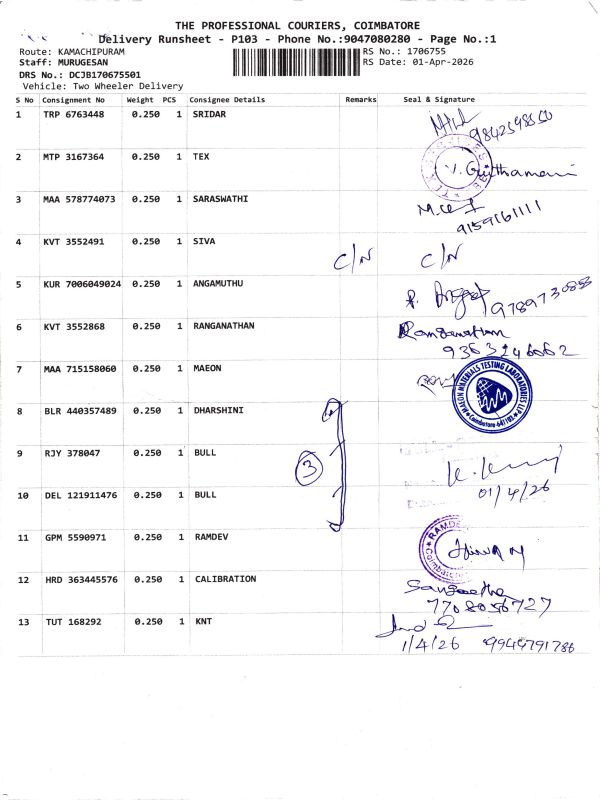 THE PROFESSIONAL COURIERS, COIMBATORE
Delivery Runsheet - P103 - Phone No.:9047080280 - Page No.:1
Route: KAMACHIPURAM RS No.: 1706755
Staff: MURUGESAN RS Date: 01-Apr-2026
DRS No.: DCJB170675501
Vehicle: Two Wheeler Delivery
S No Consignment No Weight PCS Consignee Details Remarks Seal & Signature
1 TRP 6763448 0.250 1 SRIDAR
2 MTP 3167364 0.250 1 TEX
3 MAA 578774073 0.250 1 SARASWATHI
9159161111
4 KVT 3552491 0.250 1 SIVA C/N C/N
5 KUR 7006049024 0.250 1 ANGAMUTHU
6 KVT 3552868 0.250 1 RANGANATHAN Ranganathan
9363246662
7 MAA 715158060 0.250 1 MAEON MAEON MATERIALS TESTING LABORATORIES LLP
8 BLR 440357489 0.250 1 DHARSHINI
9 RJY 378047 0.250 1 BULL 3
10 DEL 121911476 0.250 1 BULL 01/4/26
11 GPM 5590971 0.250 1 RAMDEV
12 HRD 363445576 0.250 1 CALIBRATION Sangeetha
7708056727
13 TUT 168292 0.250 1 KNT
1/4/26 9944791786